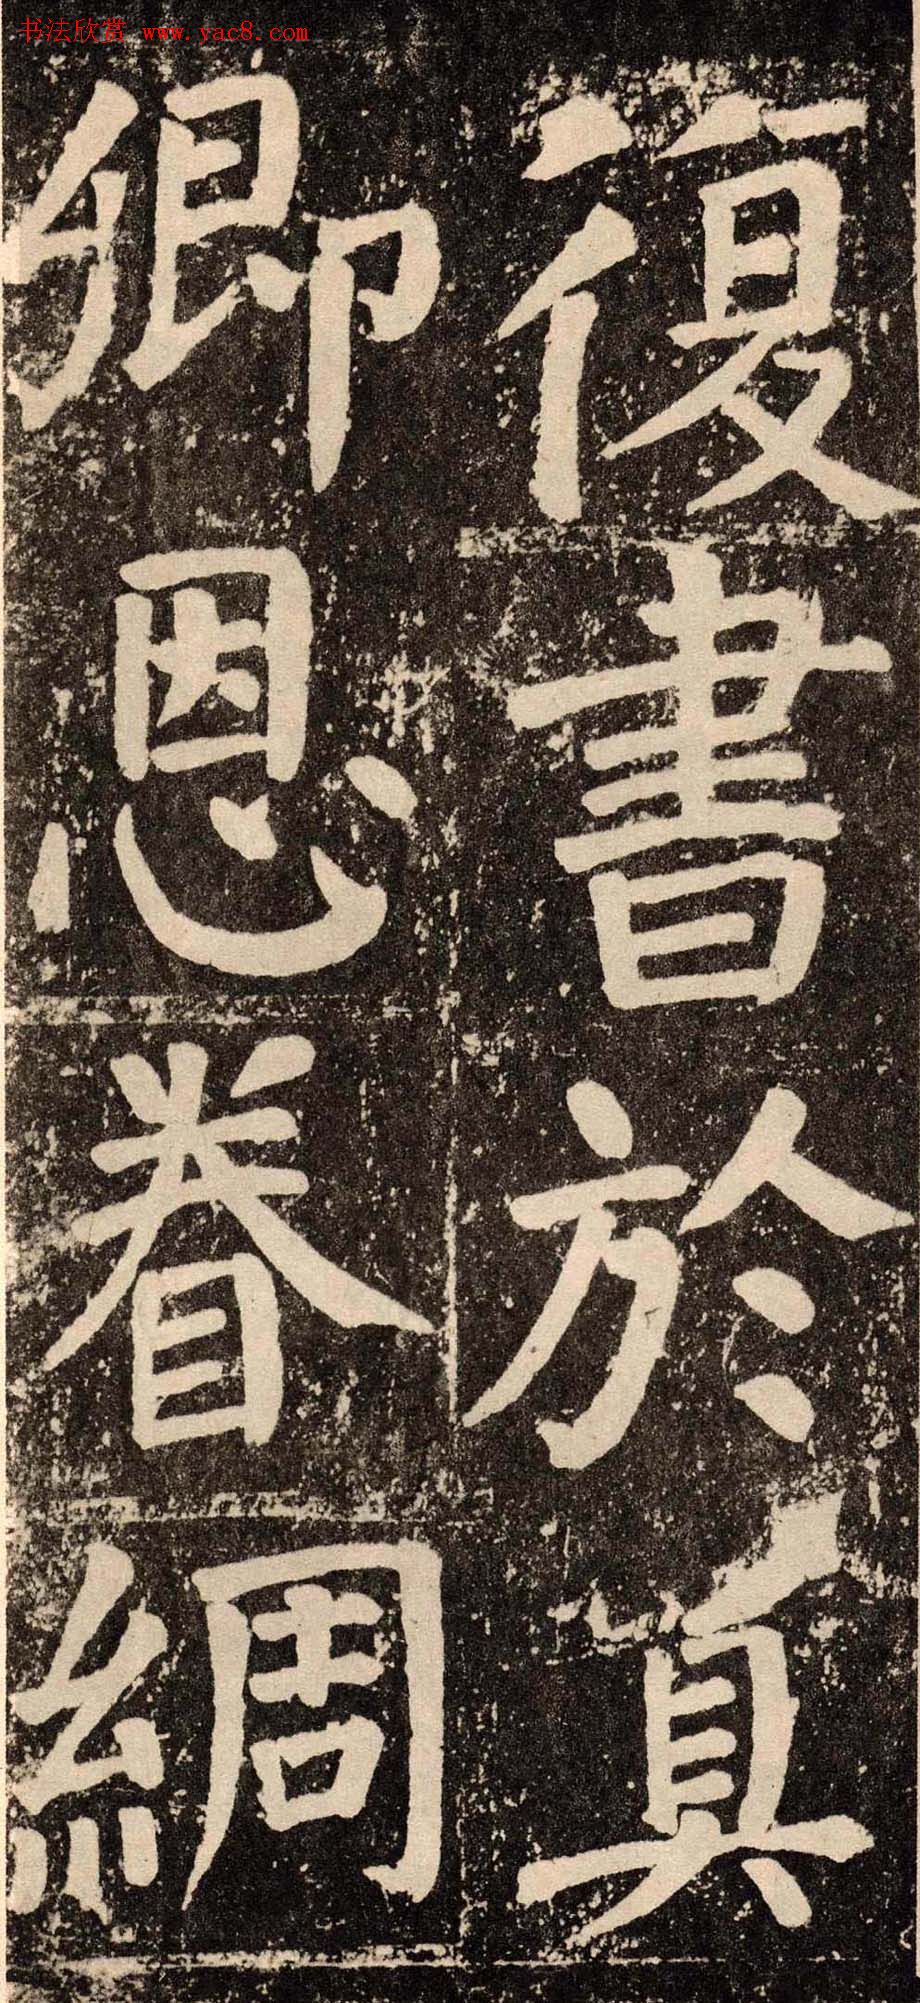 书法欣赏 www.yac8.com
復書於真
卿恩眷綢